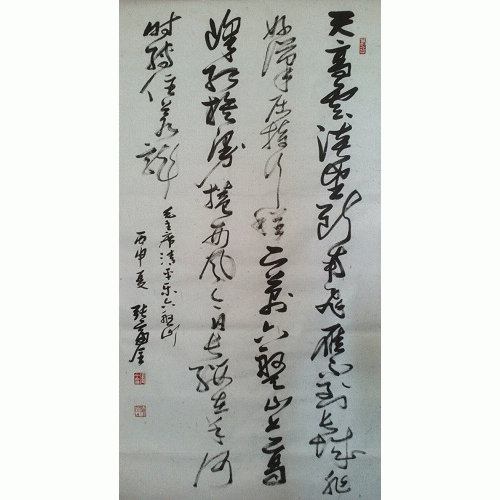 天高雲淡望断南飛雁不到长城非
好漢屈指行程二萬六盤山上高
峰红旗漫捲西风今日长缨在手何
时缚住苍龍
毛主席清平乐六盤山
丙申夏